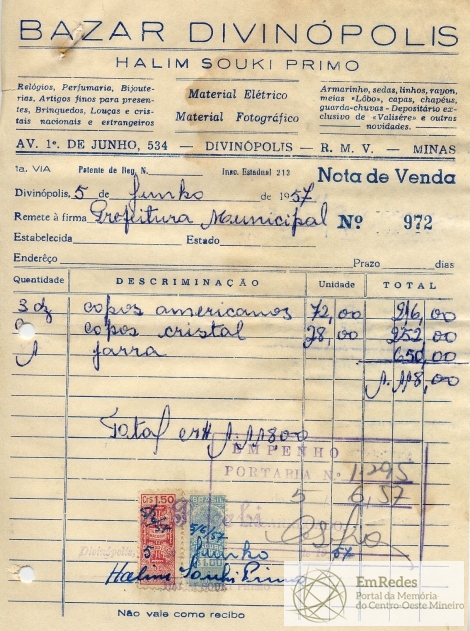 BAZAR DIVINÓPOLIS
HALIM SOUKI PRIMO
Relógios, Perfumaria, Bijoute-
rias, Artigos finos para presen-
tes, Brinquedos, Louças e cris-
tais nacionais e estrangeiros
Material Elétrico
Material Fotográfico
Armarinho, sedas, linhos, rayon,
meias «Lôbo», capas, chapéus,
guarda-chuvas - Depositário ex-
clusivo de «Valisére» e outras
novidades.
AV. 1º. DE JUNHO, 534 — DIVINÓPOLIS — R. M. V. — MINAS
1a. VIA Patente de Reg. N. Insc. Estadual 213 Nota de Venda
Divinópolis, 5 de Junho de 1957
Remete à firma Prefeitura Municipal Nº 972
Estabelecida Estado
Endereço Prazo dias
Quantidade DESCRIMINAÇÃO Unidade TOTAL
3 dz copos americanos 72,00 216,00
9 copos cristal 28,00 252,00
1 jarra 650,00
1.118,00
Total 1.118,00
EMPENHO
PORTARIA Nº 1295
5 6,57
Cr$ 1,50
BRASIL
5/6/57
5/6/57
Divinópolis, 5 Junho 57
Halim Souki Primo
Não vale como recibo
EmRedes
Portal da Memória
do Centro-Oeste Mineiro